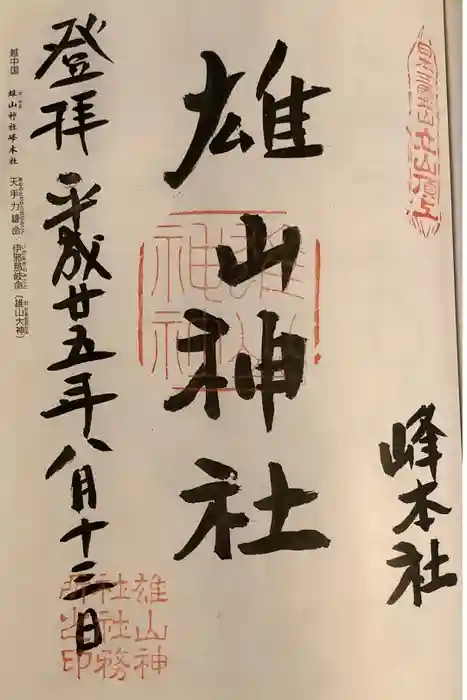 峰本社
雄山神社
登拝 平成廿五年八月十三日
越中国
雄山神社峰本社
天手力雄命
伊邪那岐命(雄山大神)
立山頂上
雄山
神社
雄山神
社社務
所之印